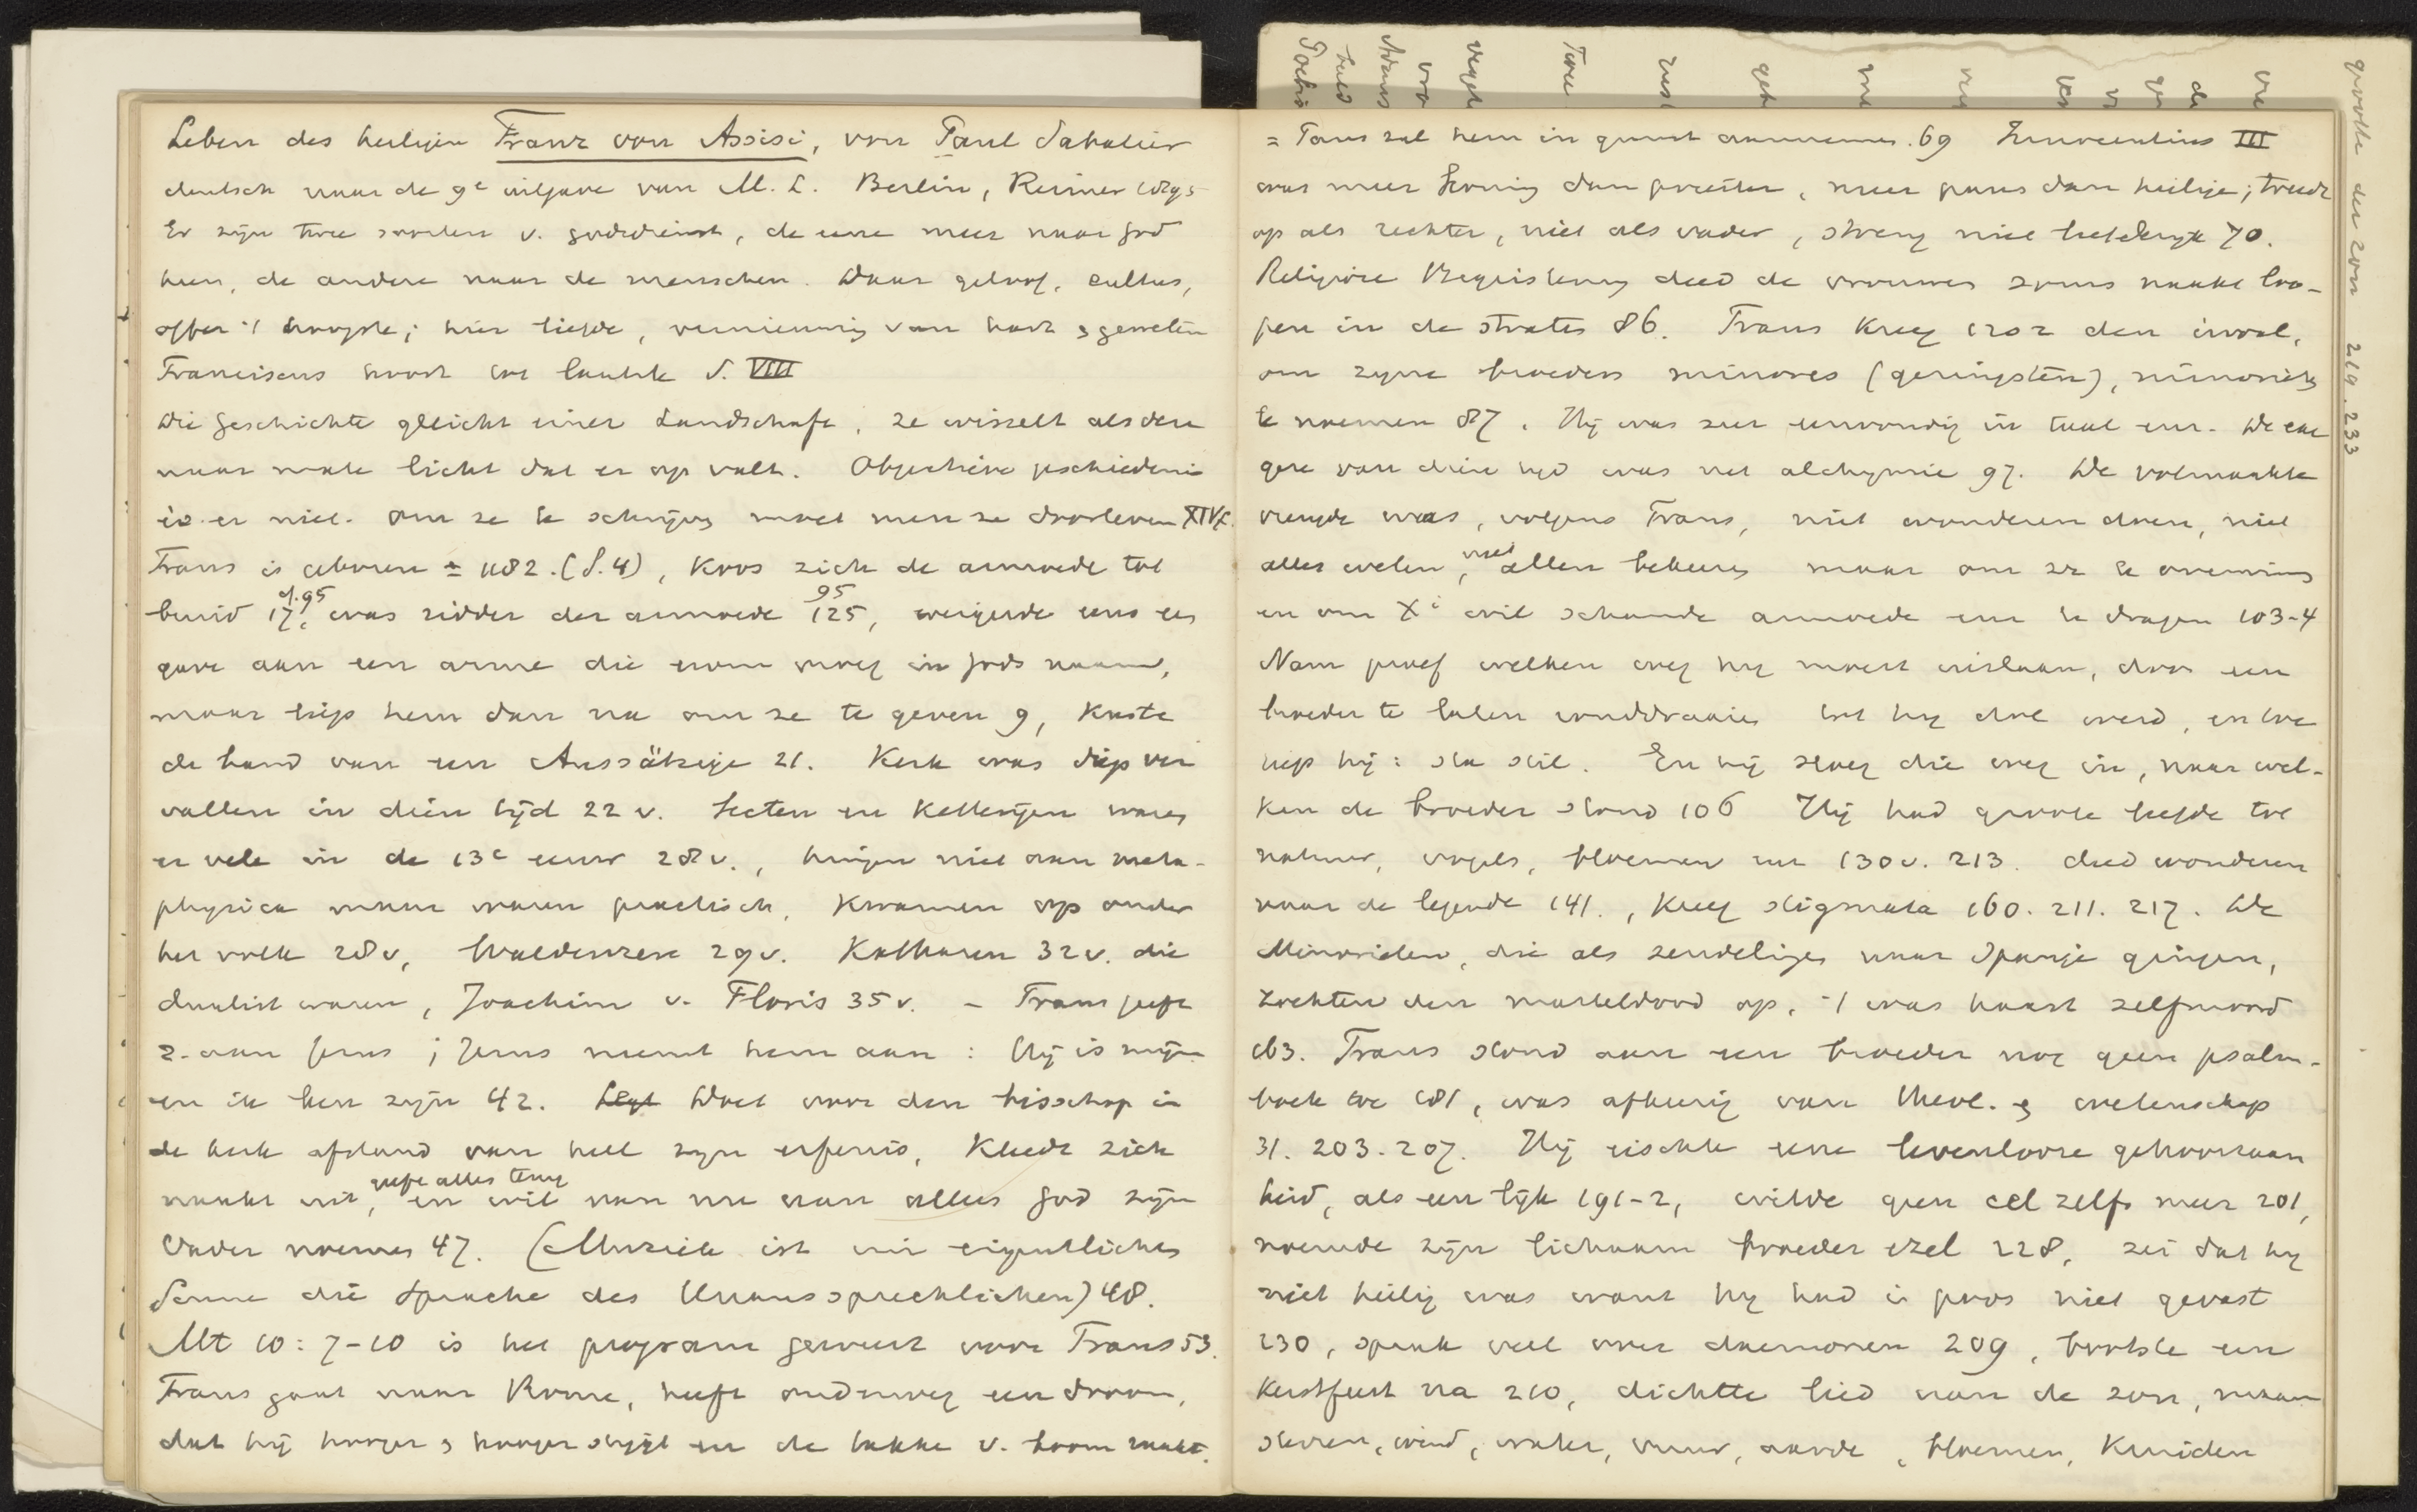 Leben des heiligen Franz von Assisi, von Paul Sabatier
deutsch naar de 9e uitgave van M. L. Berlin, Reimer 1895
Er zijn twee soorten v. godsdienst, de eene meer naar God
heen, de andere naar de menschen. Daar geloof, cultus,
offer 't hoogste; hier liefde, vernieuwing van hart & geweten
Franciscus hoort tot laatste S. VIII
Die Geschichte gleicht einer Landschaft, ze wisselt als deze
naar mate licht dat er op valt. Objectieve geschiedenis
is er niet. Om ze te schrijven moet men ze doorleven XIV
Frans is geboren ± 1182. (S. 4), koos zich de armoede tot
bruid 17, S. 95 was ridder der armoede 125, 95 weigerde eens een
gave aan een arme die erom vroeg in Gods naam,
maar liep hem dan na om ze te geven 9, kuste
de hand van een Aussätzige 21. Kerk was diep ver
vallen in dien tijd 22 v. Secten en Ketterijen waren
er vele in de 13e eeuw 28 v., hingen niet aan meta-
physica maar waren practisch, kwamen op onder
het volk 28 v, Waldenzen 29 v. Katharen 32 v. die
dualist waren, Joachim v. Floris 35 v. - Frans geeft
z. aan Jezus; Jezus neemt hem aan: Hij is mijn
en ik ben zijn 42. Doet voor den bisschop in
de kerk afstand van heel zijn erfenis, kleedt zich
naakt uit, geeft alles terug en wil van nu aan alleen God zijn
Vader noemen 47. (Musik ist im eigentlichen
Sinne die Sprache des Unaussprechlichen) 48.
Mt 10: 7-10 is het program geweest voor Frans 53.
Frans gaat naar Rome, heeft onderweg een droom,
dat hij hooger & hooger stijgt en de takken v. boom raakt.
= Paus zal hem in gunst aannemen. 69 Innocentius III
was meer koning dan priester, meer paus dan heilige; treedt
op als rechter, niet als vader, streng niet liefderijk 70.
Religiöse Begeisterung deed de vrouwen soms naakt loo-
pen in de straten 86. Frans kreeg 1202 den inval,
om zijne broeders minores (geringsten), minorieten
te noemen 87. Hij was zeer eenvoudig in taal enz. De
van dien tijd was net alchymie 97. De volmaakte
vreugde was, volgens Frans, niet wonderen doen, niet
alles weten, niet allen bekeeren maar om ze te overwinnen
en om X' wil schande armoede enz te dragen 103-4
Nam proef welken weg hij moest inslaan, door een
broeder te laten ronddraaien tot hij dol werd, en toe
riep hij: sta stil. En hij sloeg die weg in, naar wel-
ken de broeder stond 106 Hij had groote liefde tot
natuur, vogels, bloemen enz 130 v. 213. deed wonderen
naar de legende 141., kreeg stigmata 160. 211. 217. De
Minorieten, die als zendelingen naar Spanje gingen,
zochten den marteldood op, 't was haast zelfmoord
163. Frans stond aan een broeder nog geen psalm-
boek toe 181, was afkeerig van theol. & wetenschap
31. 203. 207. Hij eischte eene levenlooze gehoorzaam
heid, als een lijk 191-2, wilde geen cel zelfs meer 201,
noemde zijn lichaam broeder ezel 228, zei dat hij
niet heilig was want hij had in niet gevast
230, sprak veel over daemonen 209, bootste een
Kerstfeest na 210, dichtte lied van de zon, maan
sterren, wind, water, vuur, aarde, bloemen, kruiden
219. 233